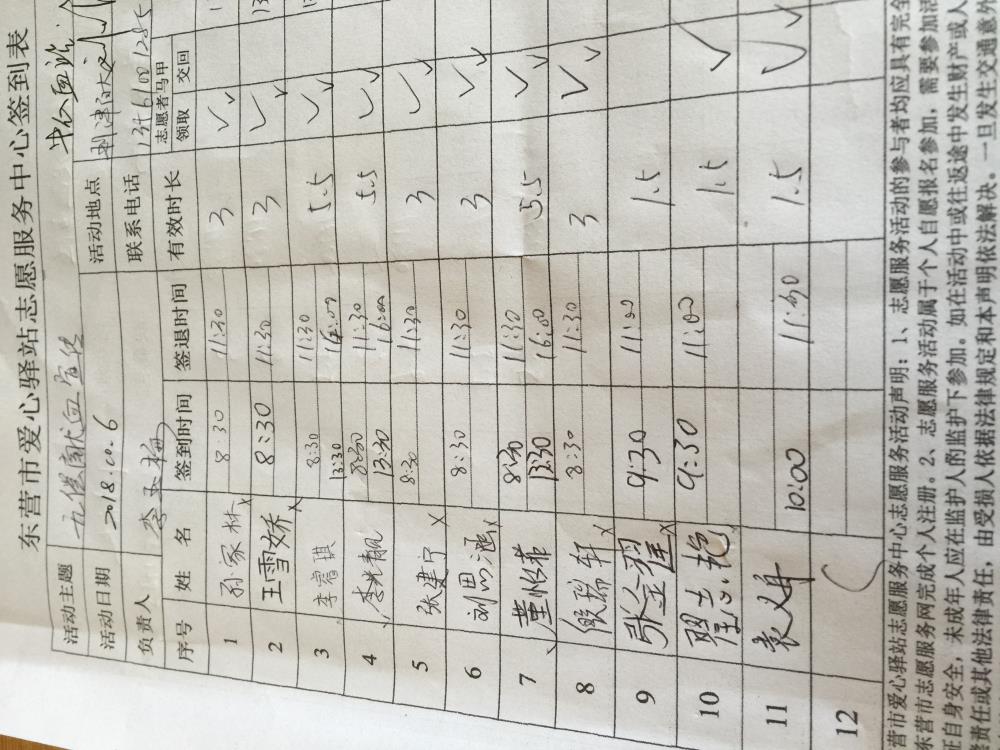 东营市爱心驿站志愿服务中心签到表
活动主题 无偿献血宣传 活动地点 中心血站
活动日期 2018.10.6 联系电话
负责人 李玉梅 有效时长 志愿者马甲
序号 姓 名 签到时间 签退时间 领取 交回
1 孙家林 8:30 11:30 3 ✓ ✓
2 王雪娇 8:30 11:30 3 ✓ ✓
3 李睿琪 8:30 11:30 5.5 ✓ ✓
13:30 16:00
4 8:30 11:30 5.5 ✓ ✓
13:30 16:00
5 张建宁 8:30 11:30 3 ✓ ✓
6 刘思涵 8:30 11:30 3 ✓ ✓
7 董怡菲 8:30 11:30 5.5 ✓ ✓
13:30 16:00
8 瑞轩 8:30 11:30 3 ✓ ✓
9 张金翠 9:30 11:00 1.5
10 9:30 11:00 1.5 ✓
11 10:00 11:30 1.5 ✓
12
营市爱心驿站志愿服务中心志愿服务活动声明：1、志愿服务活动的参与者均应具有完全
东营市志愿服务网完成个人注册。2、志愿服务活动属于个人自愿报名参加，需要参加活
证自身安全，未成年人应在监护人的监护下参加。如在活动中或往返途中发生财产或人
责任或其他法律责任，由受损人依据法律规定和本声明依法解决。一旦发生交通意外